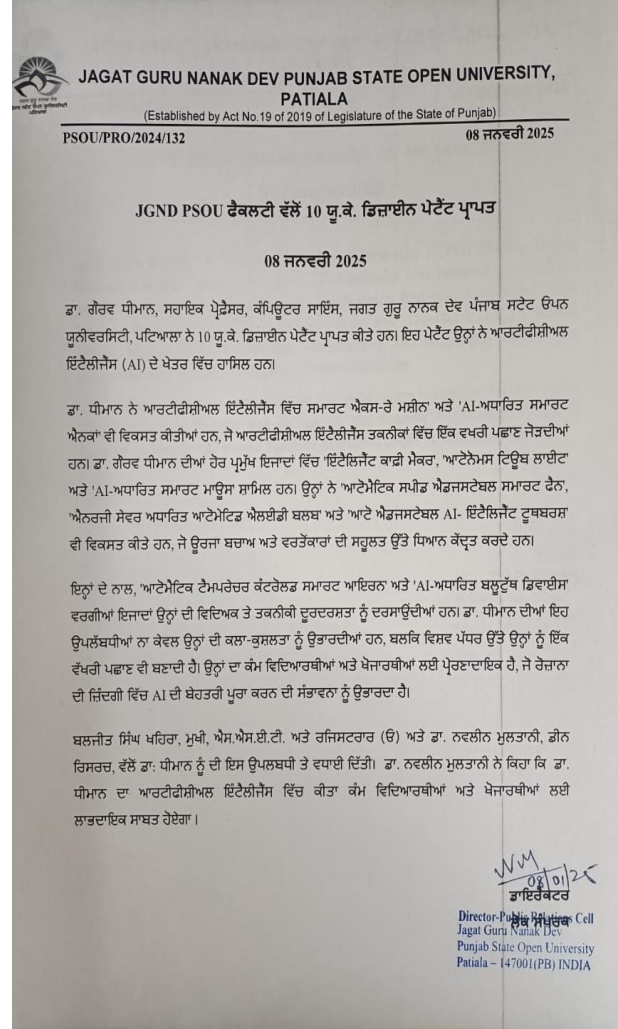 JAGAT GURU NANAK DEV PUNJAB STATE OPEN UNIVERSITY,
PATIALA
(Established by Act No.19 of 2019 of Legislature of the State of Punjab)
PSOU/PRO/2024/132 08 ਜਨਵਰੀ 2025
JGND PSOU ਫੈਕਲਟੀ ਵੱਲੋਂ 10 ਯੂ.ਕੇ. ਡਿਜ਼ਾਈਨ ਪੇਟੈਂਟ ਪ੍ਰਾਪਤ
08 ਜਨਵਰੀ 2025
ਡਾ. ਗੌਰਵ ਧੀਮਾਨ, ਸਹਾਇਕ ਪ੍ਰੋਫ਼ੈਸਰ, ਕੰਪਿਊਟਰ ਸਾਇੰਸ, ਜਗਤ ਗੁਰੂ ਨਾਨਕ ਦੇਵ ਪੰਜਾਬ ਸਟੇਟ ਓਪਨ
ਯੂਨੀਵਰਸਿਟੀ, ਪਟਿਆਲਾ ਨੇ 10 ਯੂ.ਕੇ. ਡਿਜ਼ਾਈਨ ਪੇਟੈਂਟ ਪ੍ਰਾਪਤ ਕੀਤੇ ਹਨ। ਇਹ ਪੇਟੈਂਟ ਉਨ੍ਹਾਂ ਨੇ ਆਰਟੀਫੀਸ਼ੀਅਲ
ਇੰਟੈਲੀਜੈਂਸ (AI) ਦੇ ਖੇਤਰ ਵਿੱਚ ਹਾਸਿਲ ਹਨ।
ਡਾ. ਧੀਮਾਨ ਨੇ ਆਰਟੀਫੀਸ਼ੀਅਲ ਇੰਟੈਲੀਜੈਂਸ ਵਿੱਚ ਸਮਾਰਟ ਐਕਸ-ਰੇ ਮਸ਼ੀਨ' ਅਤੇ 'AI-ਅਧਾਰਿਤ ਸਮਾਰਟ
ਐਨਕਾਂ' ਵੀ ਵਿਕਸਤ ਕੀਤੀਆਂ ਹਨ, ਜੋ ਆਰਟੀਫੀਸ਼ੀਅਲ ਇੰਟੈਲੀਜੈਂਸ ਤਕਨੀਕਾਂ ਵਿੱਚ ਇੱਕ ਵਖਰੀ ਪਛਾਣ ਜੋੜਦੀਆਂ
ਹਨ। ਡਾ. ਗੌਰਵ ਧੀਮਾਨ ਦੀਆਂ ਹੋਰ ਪ੍ਰਮੁੱਖ ਇਜਾਦਾਂ ਵਿੱਚ 'ਇੰਟੈਲਿਜੈਂਟ ਕਾਫ਼ੀ ਮੈਕਰ', 'ਆਟੋਨੋਮਸ ਟਿਊਬ ਲਾਈਟ'
ਅਤੇ 'AI-ਅਧਾਰਿਤ ਸਮਾਰਟ ਮਾਊਸ' ਸ਼ਾਮਿਲ ਹਨ। ਉਨ੍ਹਾਂ ਨੇ 'ਆਟੋਮੈਟਿਕ ਸਪੀਡ ਐਡਜਸਟੇਬਲ ਸਮਾਰਟ ਫੈਨ',
'ਐਨਰਜੀ ਸੇਵਰ ਅਧਾਰਿਤ ਆਟੋਮੇਟਿਡ ਐਲਈਡੀ ਬਲਬ' ਅਤੇ 'ਆਟੋ ਐਡਜਸਟੇਬਲ AI- ਇੰਟੈਲਿਜੈਂਟ ਟੂਥਬਰਸ਼'
ਵੀ ਵਿਕਸਤ ਕੀਤੇ ਹਨ, ਜੋ ਊਰਜਾ ਬਚਾਅ ਅਤੇ ਵਰਤੋਂਕਾਰਾਂ ਦੀ ਸਹੂਲਤ ਉੱਤੇ ਧਿਆਨ ਕੇਂਦ੍ਰਤ ਕਰਦੇ ਹਨ।
ਇਨ੍ਹਾਂ ਦੇ ਨਾਲ, 'ਆਟੋਮੈਟਿਕ ਟੈਮਪਰੇਚਰ ਕੰਟਰੋਲਡ ਸਮਾਰਟ ਆਇਰਨ' ਅਤੇ 'AI-ਅਧਾਰਿਤ ਬਲੂਟੁੱਥ ਡਿਵਾਈਸ'
ਵਰਗੀਆਂ ਇਜਾਦਾਂ ਉਨ੍ਹਾਂ ਦੀ ਵਿਦਿਅਕ ਤੇ ਤਕਨੀਕੀ ਦੂਰਦਰਸ਼ਤਾ ਨੂੰ ਦਰਸਾਉਂਦੀਆਂ ਹਨ। ਡਾ. ਧੀਮਾਨ ਦੀਆਂ ਇਹ
ਉਪਲੱਬਧੀਆਂ ਨਾ ਕੇਵਲ ਉਨ੍ਹਾਂ ਦੀ ਕਲਾ-ਕੁਸ਼ਲਤਾ ਨੂੰ ਉਭਾਰਦੀਆਂ ਹਨ, ਬਲਕਿ ਵਿਸ਼ਵ ਪੱਧਰ ਉੱਤੇ ਉਨ੍ਹਾਂ ਨੂੰ ਇੱਕ
ਵੱਖਰੀ ਪਛਾਣ ਵੀ ਬਣਾਦੀ ਹੈ। ਉਨ੍ਹਾਂ ਦਾ ਕੰਮ ਵਿਦਿਆਰਥੀਆਂ ਅਤੇ ਖੋਜਾਰਥੀਆਂ ਲਈ ਪ੍ਰੇਰਣਾਦਾਇਕ ਹੈ, ਜੋ ਰੋਜ਼ਾਨਾ
ਦੀ ਜ਼ਿੰਦਗੀ ਵਿੱਚ AI ਦੀ ਬੇਹਤਰੀ ਪੂਰਾ ਕਰਨ ਦੀ ਸੰਭਾਵਨਾ ਨੂੰ ਉਭਾਰਦਾ ਹੈ।
ਬਲਜੀਤ ਸਿੰਘ ਖਹਿਰਾ, ਮੁਖੀ, ਐਸ.ਐਸ.ਈ.ਟੀ. ਅਤੇ ਰਜਿਸਟਰਾਰ (ਓ) ਅਤੇ ਡਾ. ਨਵਲੀਨ ਮੁਲਤਾਨੀ, ਡੀਨ
ਰਿਸਰਚ, ਵੱਲੋਂ ਡਾ: ਧੀਮਾਨ ਨੂੰ ਦੀ ਇਸ ਉਪਲਬਧੀ ਤੇ ਵਧਾਈ ਦਿੱਤੀ। ਡਾ. ਨਵਲੀਨ ਮੁਲਤਾਨੀ ਨੇ ਕਿਹਾ ਕਿ ਡਾ.
ਧੀਮਾਨ ਦਾ ਆਰਟੀਫੀਸ਼ੀਅਲ ਇੰਟੈਲੀਜੈਂਸ ਵਿੱਚ ਕੀਤਾ ਕੰਮ ਵਿਦਿਆਰਥੀਆਂ ਅਤੇ ਖੋਜਾਰਥੀਆਂ ਲਈ
ਲਾਭਦਾਇਕ ਸਾਬਤ ਹੋਏਗਾ।
08/01/25
ਡਾਇਰੈਕਟਰ
ਲੋਕ ਸੰਪਰਕ
Director-Public Relations Cell
Jagat Guru Nanak Dev
Punjab State Open University
Patiala – 147001(PB) INDIA